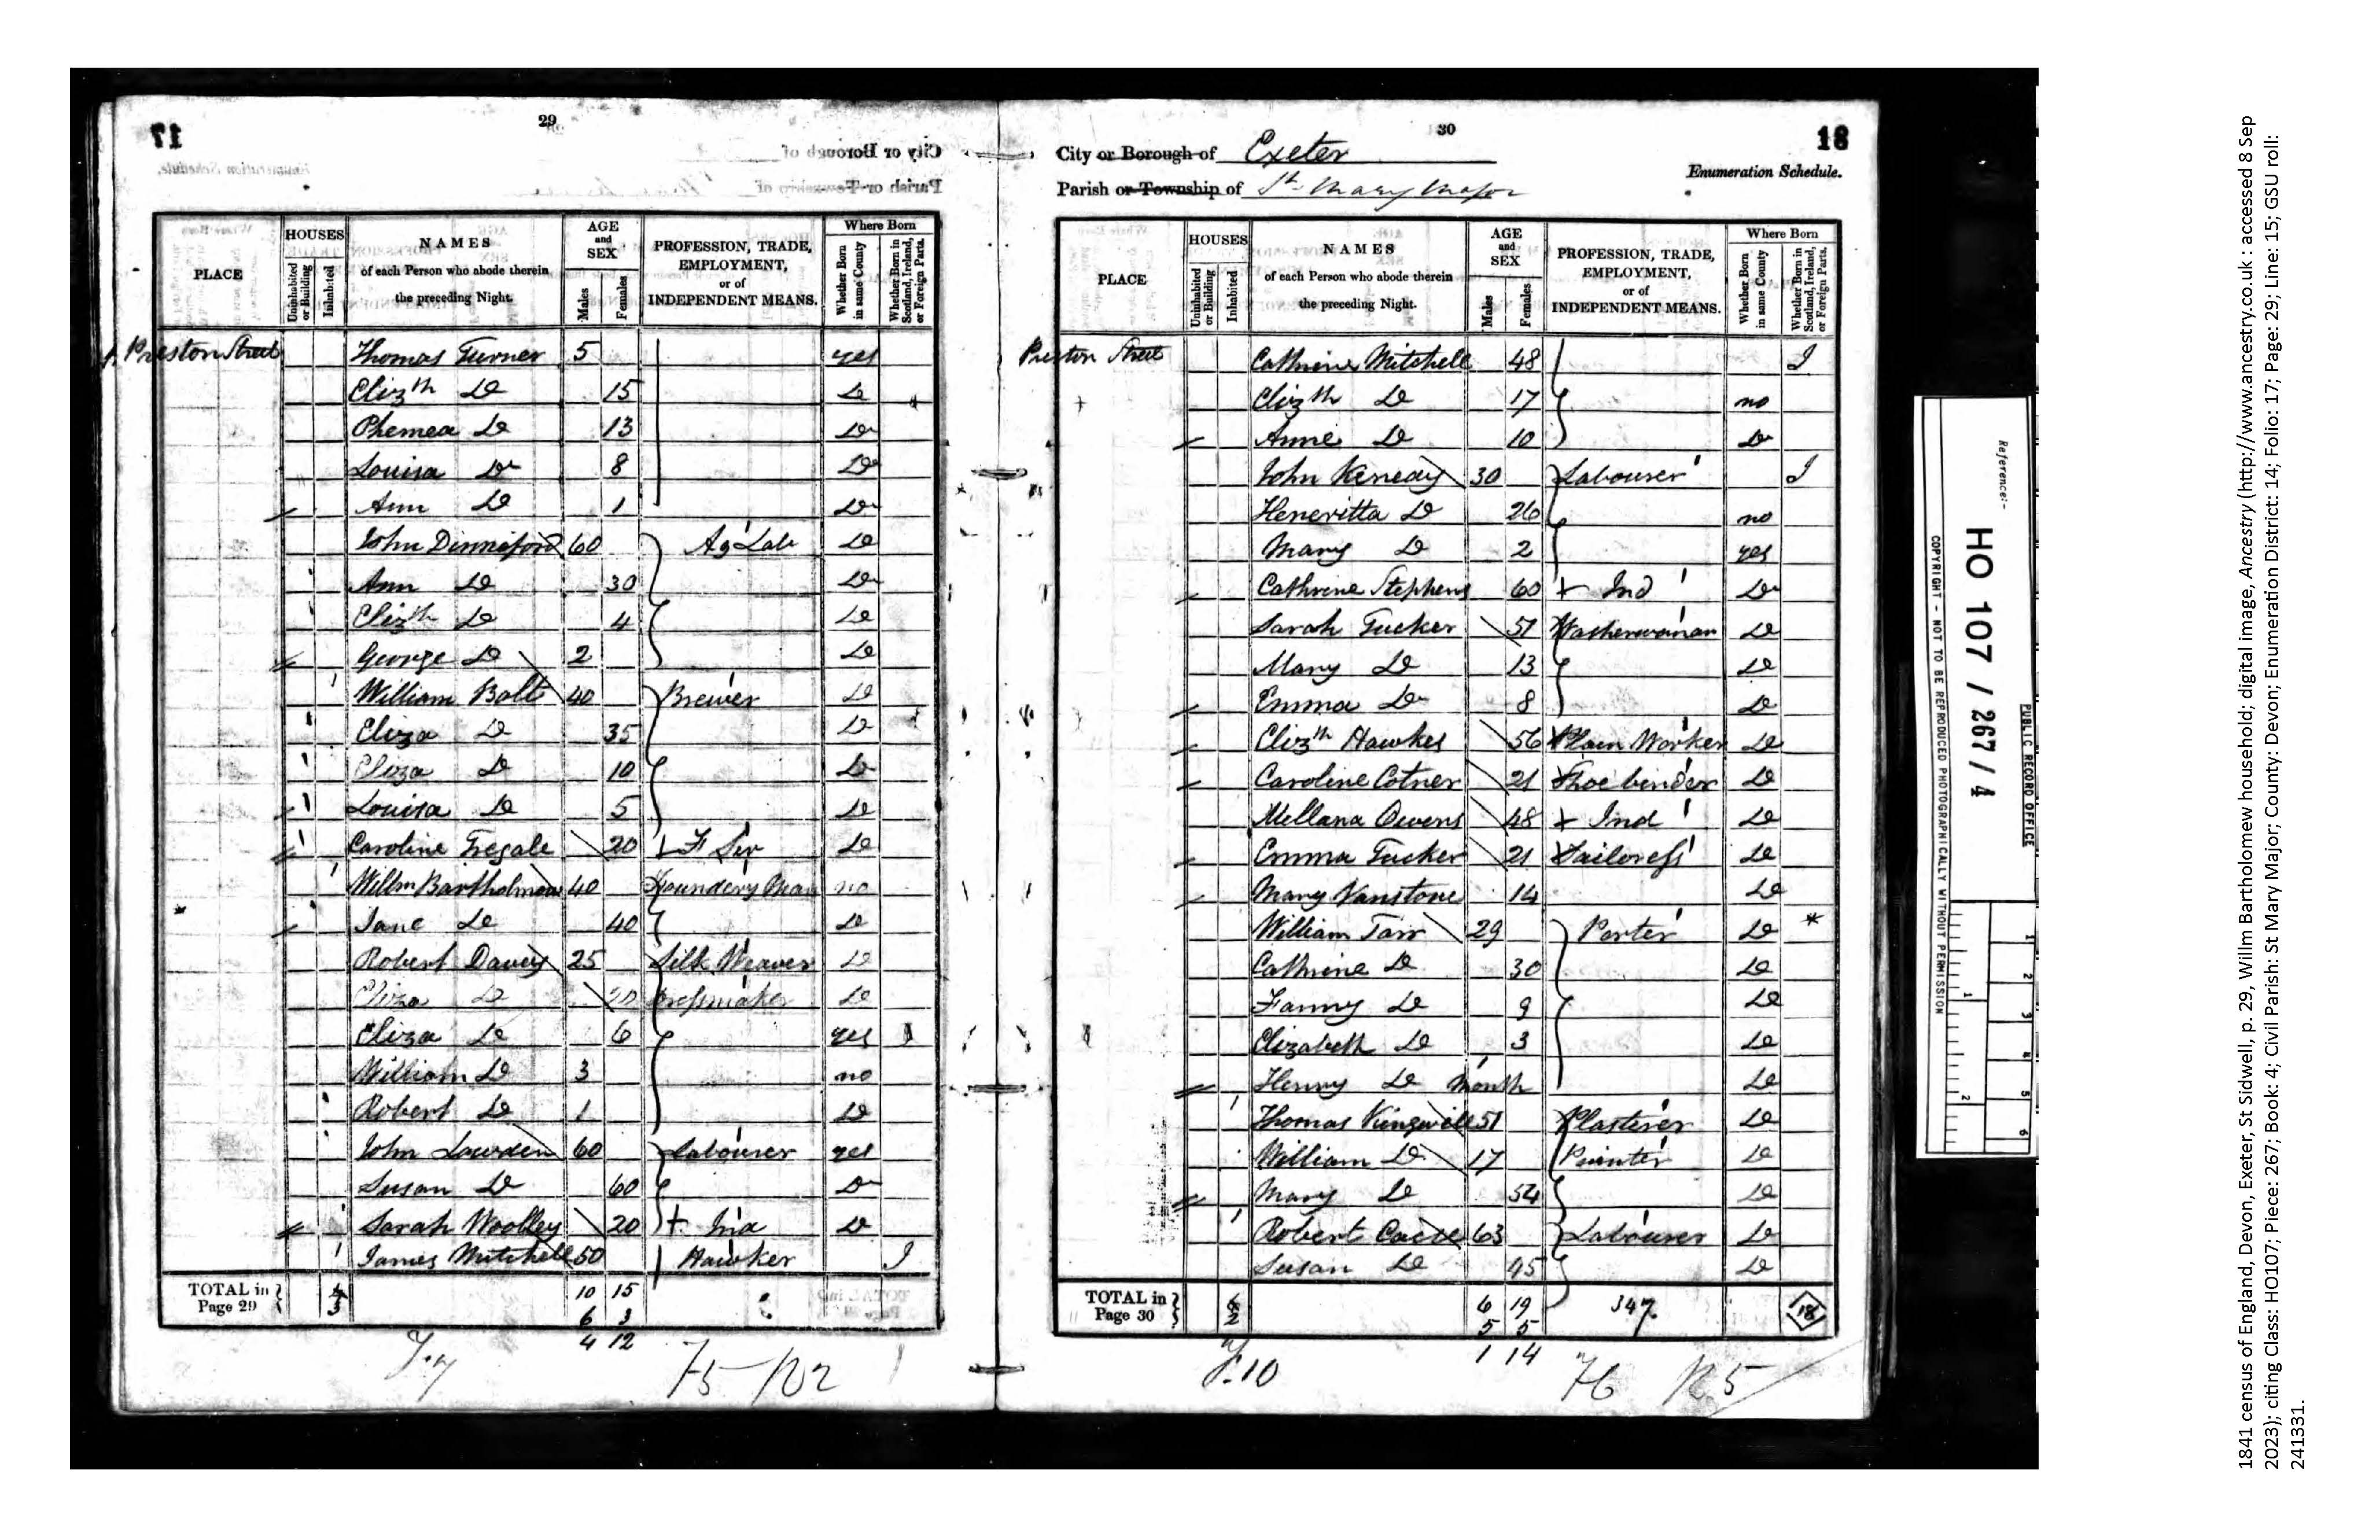 29
17
PLACE
HOUSES
Uninhabited or Building
Inhabited
NAMES
of each Person who abode therein
the preceding Night.
AGE
and
SEX
Males
Females
PROFESSION, TRADE,
EMPLOYMENT,
or of
INDEPENDENT MEANS.
Where Born
Whether Born in same County
Whether Born in Scotland, Ireland, or Foreign Parts.
Preston Street Thomas Turner 5 yes
Elizth Do 15 Do
Phemea Do 13 Do
Louisa Do 8 Do
Ann Do 1 Do
John Dinniford 60 Ag Lab Do
Ann Do 30 Do
Elizth Do 4 Do
George Do 2 Do
William Bolt 40 Brewer Do
Eliza Do 35 Do
Eliza Do 10 Do
Louisa Do 5 Do
Caroline Tregale 20 F Ser Do
Willm Bartholmew 40 Foundery Man no
Jane Do 40 Do
Robert Davey 25 Silk Weaver Do
Eliza Do 20 Dressmaker Do
Eliza Do 6 yes
William Do 3 no
Robert Do 1 Do
John Lowden 60 Labourer yes
Susan Do 60 Do
Sarah Woolley 20 + Ind Do
James Mitchell 50 Hawker I
TOTAL in Page 29 10 15
6 3
4 12
30
18
City or Borough of Exeter
Parish or Township of St Mary Major
Enumeration Schedule.
PLACE
HOUSES
Uninhabited or Building
Inhabited
NAMES
of each Person who abode therein
the preceding Night.
AGE
and
SEX
Males
Females
PROFESSION, TRADE,
EMPLOYMENT,
or of
INDEPENDENT MEANS.
Where Born
Whether Born in same County
Whether Born in Scotland, Ireland, or Foreign Parts.
Preston Street Cathrine Mitchell 48 I
Elizth Do 17 no
Annie Do 10 Do
John Kenedy 30 Labourer I
Heneritta Do 26 no
Mary Do 2 yes
Cathrine Stephens 60 + Ind Do
Sarah Tucker 51 Washerwoman Do
Mary Do 13 Do
Emma Do 8 Do
Elizth Hawkes 56 Plain Worker Do
Caroline Cotner 21 Shoe binder Do
Mellana Owens 48 + Ind Do
Emma Tucker 21 Tailoress Do
Mary Vanstone 14 Do
William Tarr 29 Porter Do *
Cathrine Do 30 Do
Fanny Do 9 Do
Elizabeth Do 3 Do
Henry Do 1 month Do
Thomas Kingwill 51 Plasterer Do
William Do 17 Painter Do
Mary Do 54 Do
Robert 63 Labourer Do
Susan Do Do
TOTAL in Page 30 6 19 347 18
5 5
1 14
Reference:-
HO 107 / 267 / 4
PUBLIC RECORD OFFICE
COPYRIGHT - NOT TO BE REPRODUCED PHOTOGRAPHICALLY WITHOUT PERMISSION
1841 census of England, Devon, Exeter, St Sidwell, p. 29, Willm Bartholomew household; digital image, Ancestry (http://www.ancestry.co.uk : accessed 8 Sep
2023); citing Class: HO107; Piece: 267; Book: 4; Civil Parish: St Mary Major; County: Devon; Enumeration District: 14; Folio: 17; Page: 29; Line: 15; GSU roll:
241331.